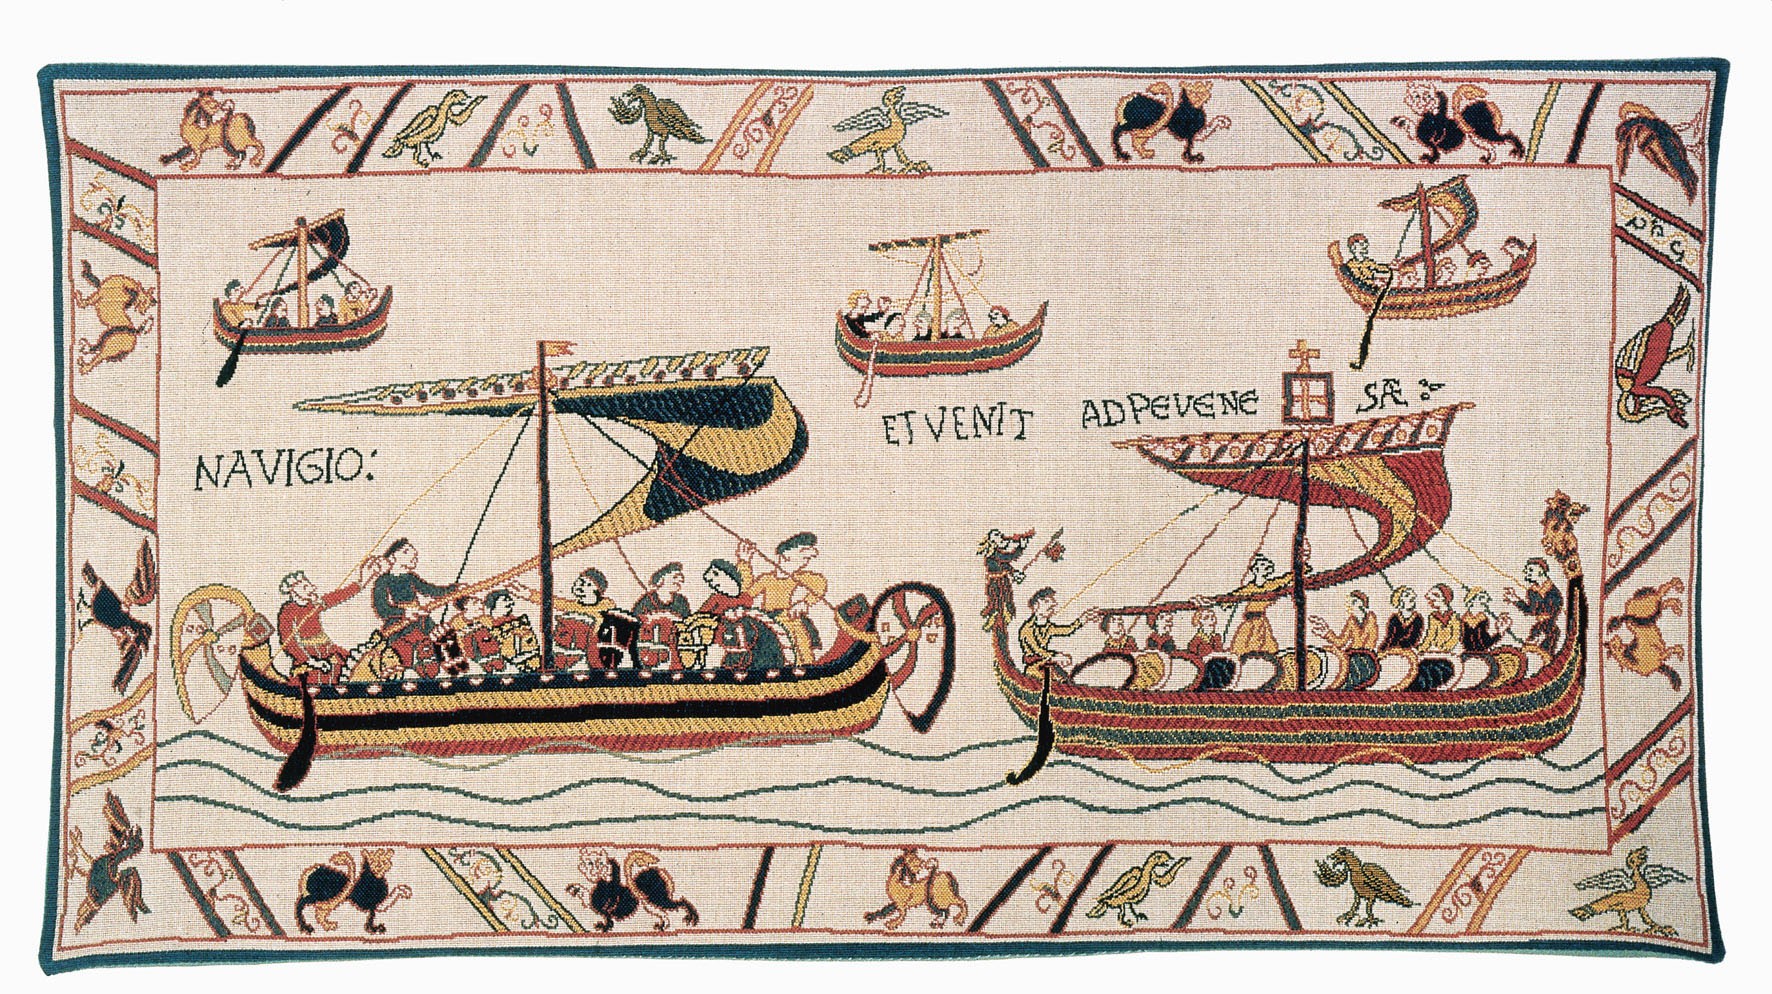 NAVIGIO:
ET VENIT AD PEVENE SÆ :-